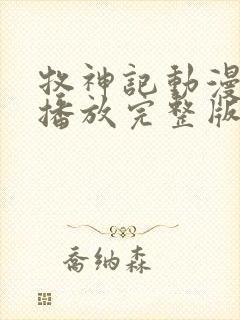 牧神記動漫
播放完整版
喬納森